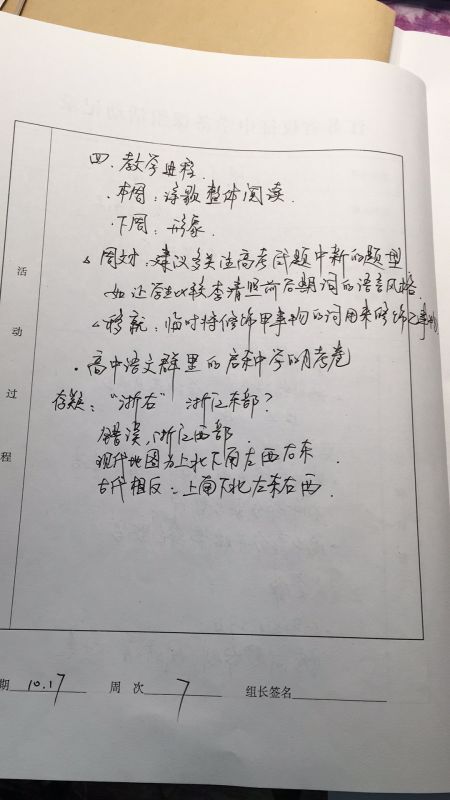 四、教学进程
·本周：诗歌整体阅读.
·下周：形象.
△周对：建议多关注高考试题中新的题型
如让学生比较李清照前后期词的语言风格
△移就：临时将修饰甲事物的词用来修饰乙事物
·高中语文群里的启东中学的月考卷
存疑："浙右" 浙江东部？
错误，浙江西部.
现代地图为上北下南左西右东.
古代相反：上南下北左东右西.
活
动
过
程
期 10.17 周 次 7 组长签名